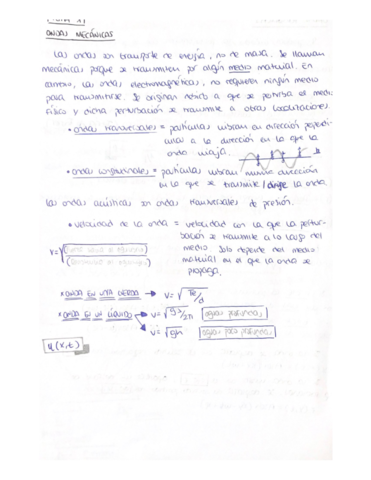 ONDAS MECÁNICAS
Las ondas son transporte de energía, no de masa. Se llaman
mecánicas porque se transmiten por algún medio material. En
cambio, las ondas electromagnéticas, no requieren ningún medio
para transmitirse. Se originan debido a que se perturba el medio
físico y dicha perturbación se transmite a otras localizaciones.
• ondas transversales = partículas vibran en dirección perpendi-
cular a la dirección en la que la
onda viaja.
• ondas longitudinales = partículas vibran misma dirección
en la que se transmite/dirige la onda.
Las ondas acústicas son ondas transversales de presión.
• velocidad de la onda = velocidad con la que la pertur-
bación se transmite a lo largo del
medio. Solo depende del medio
material en el que la onda se
propaga.
v=√
* ONDA EN UNA CUERDA → v=√Te/d
* ONDAS EN UN LÍQUIDO → v=√gλ/2π aguas profundas
v=√gh aguas poco profundas
y(x,t)